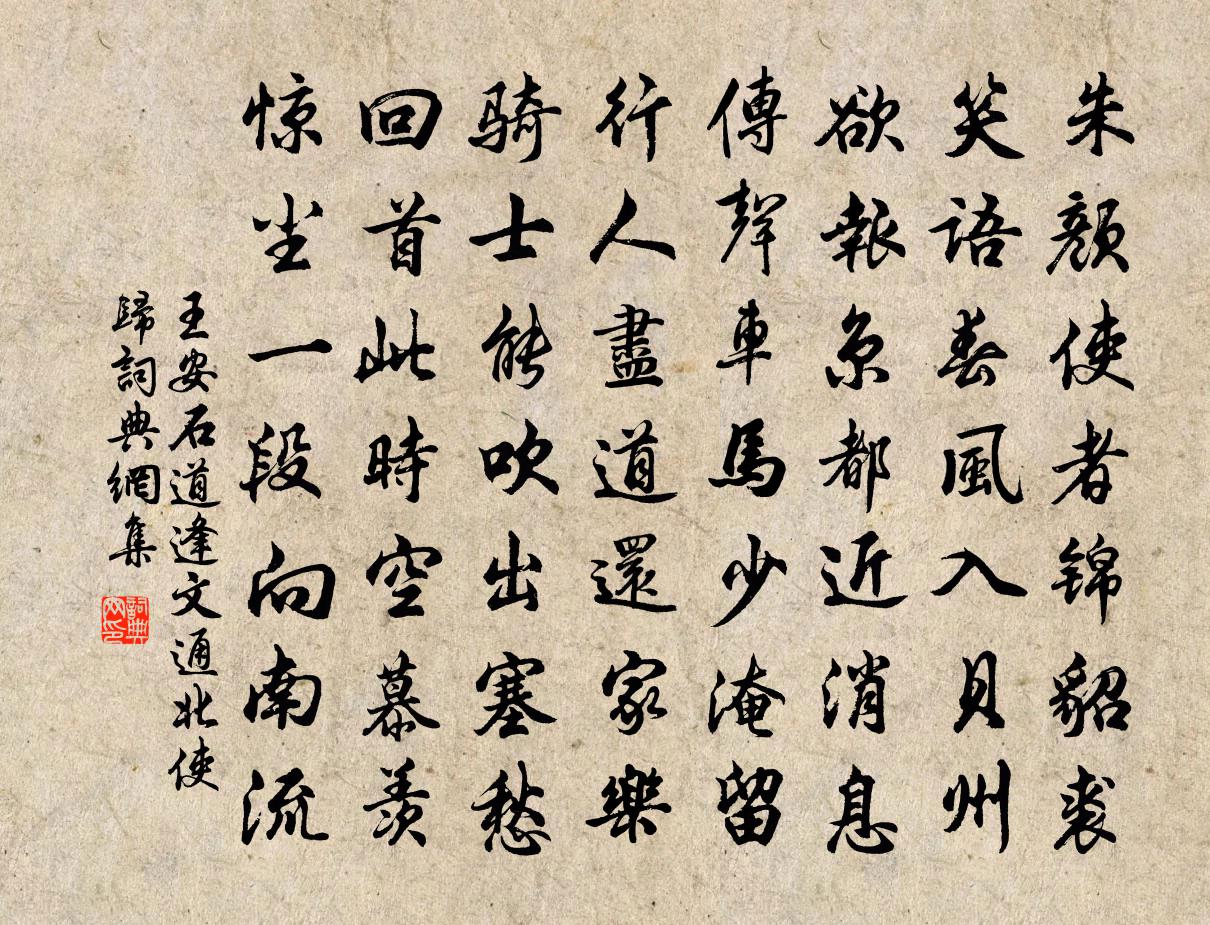 朱顏使者锦貂裘
笑語春風入貝州
欲報京都近消息
傳聲車馬少淹留
行人盡道還家樂
骑士能吹出塞愁
回首此時空慕羨
惊尘一段向南流
王安石道逢文通北使
歸詞典網集
詞典
网印